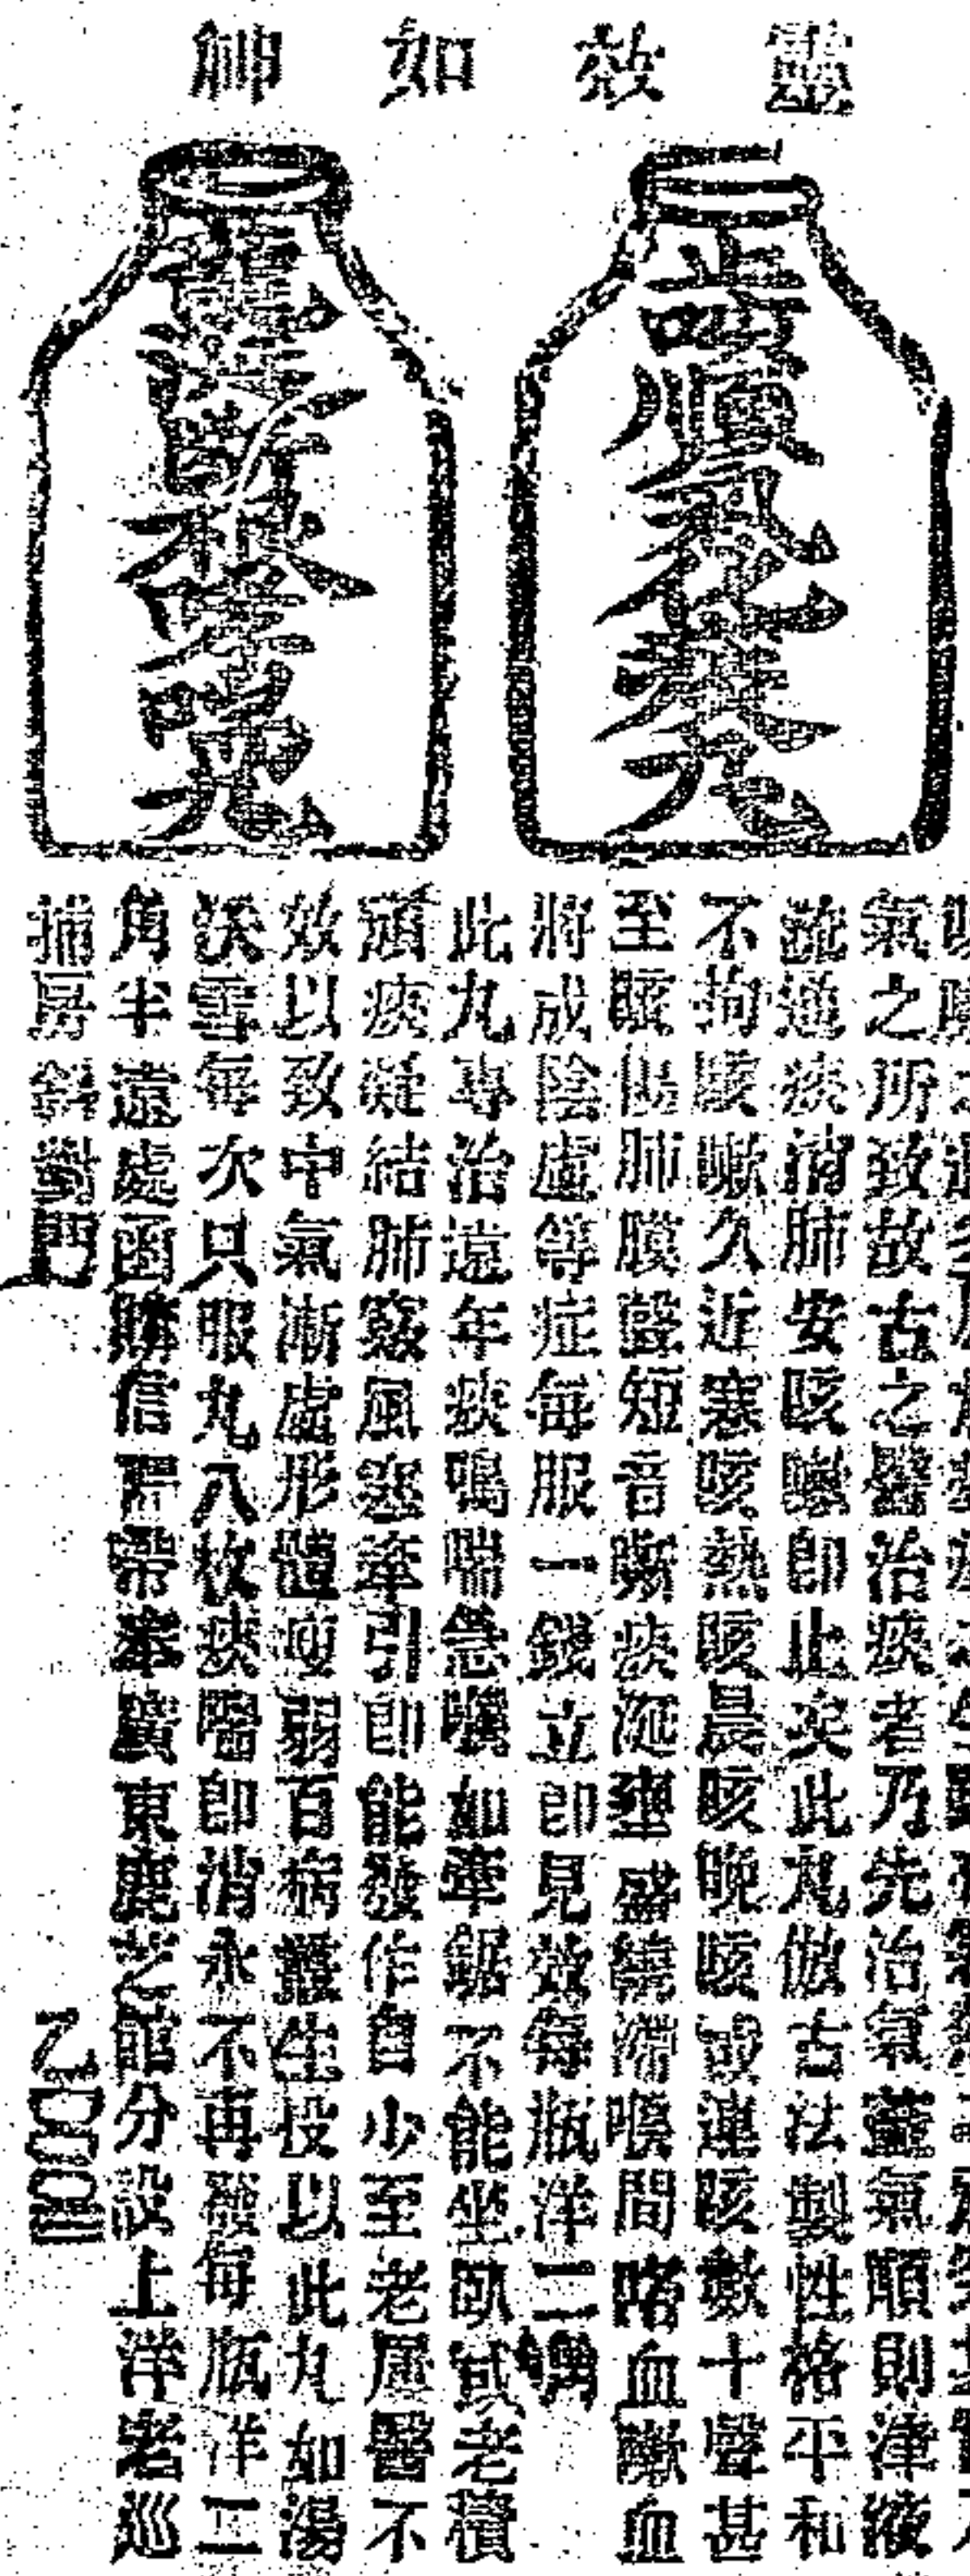 靈效如神
止咳順氣化痰丸
龍涎斷根哮喘丸
氣之所致故古之醫治痰者乃先治氣蓋氣順則津液
疏通痰消肺安咳嗽即止矣此丸倣古法製性格平和
不拘咳嗽久近寒咳熱咳晨咳晚咳或連咳數十聲甚
至咳傷肺膜聲短音嘶痰涎壅盛喉間咯血嗽血
將成陰虛等症每服一錢立即見效每瓶洋二角
此丸專治遠年痰鳴喘急嗽如牽鋸不能坐臥或老積
頑痰凝結肺竅風寒牽引即能發作自少至老屢醫不
效以致中氣漸虛形體虛弱百病叢生投以此丸如湯
沃雪每次只服丸八枚痰喘即消永不再發每瓶洋二
角半遠處函購信局帶奉廣東鹿芝館分設上洋老巡
捕房斜對門